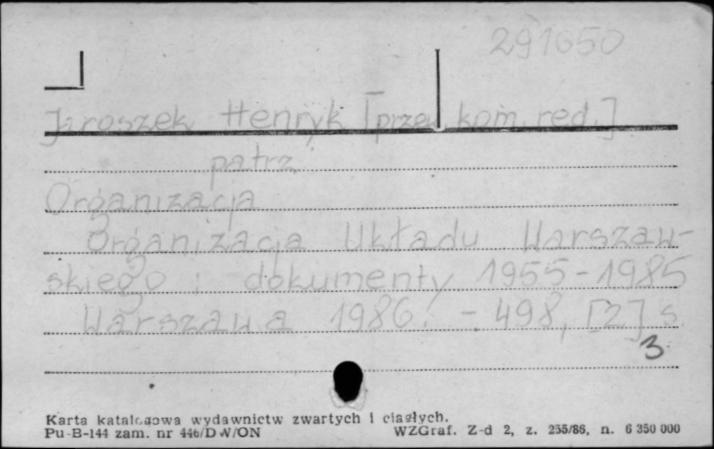 291650
Jaroszek Henryk [przew. kom. red.]
patrz
Organizacja
Organizacja Układu Warszaw-
skiego : dokumenty 1955-1985
Warszawa 1986. - 498, [2] s.
3
Karta katalogowa wydawnictw zwartych i ciągłych.
Pu-B-144 zam. nr 446/DW/ON WZGraf. Z-d 2, z. 255/86, n. 6 350 000